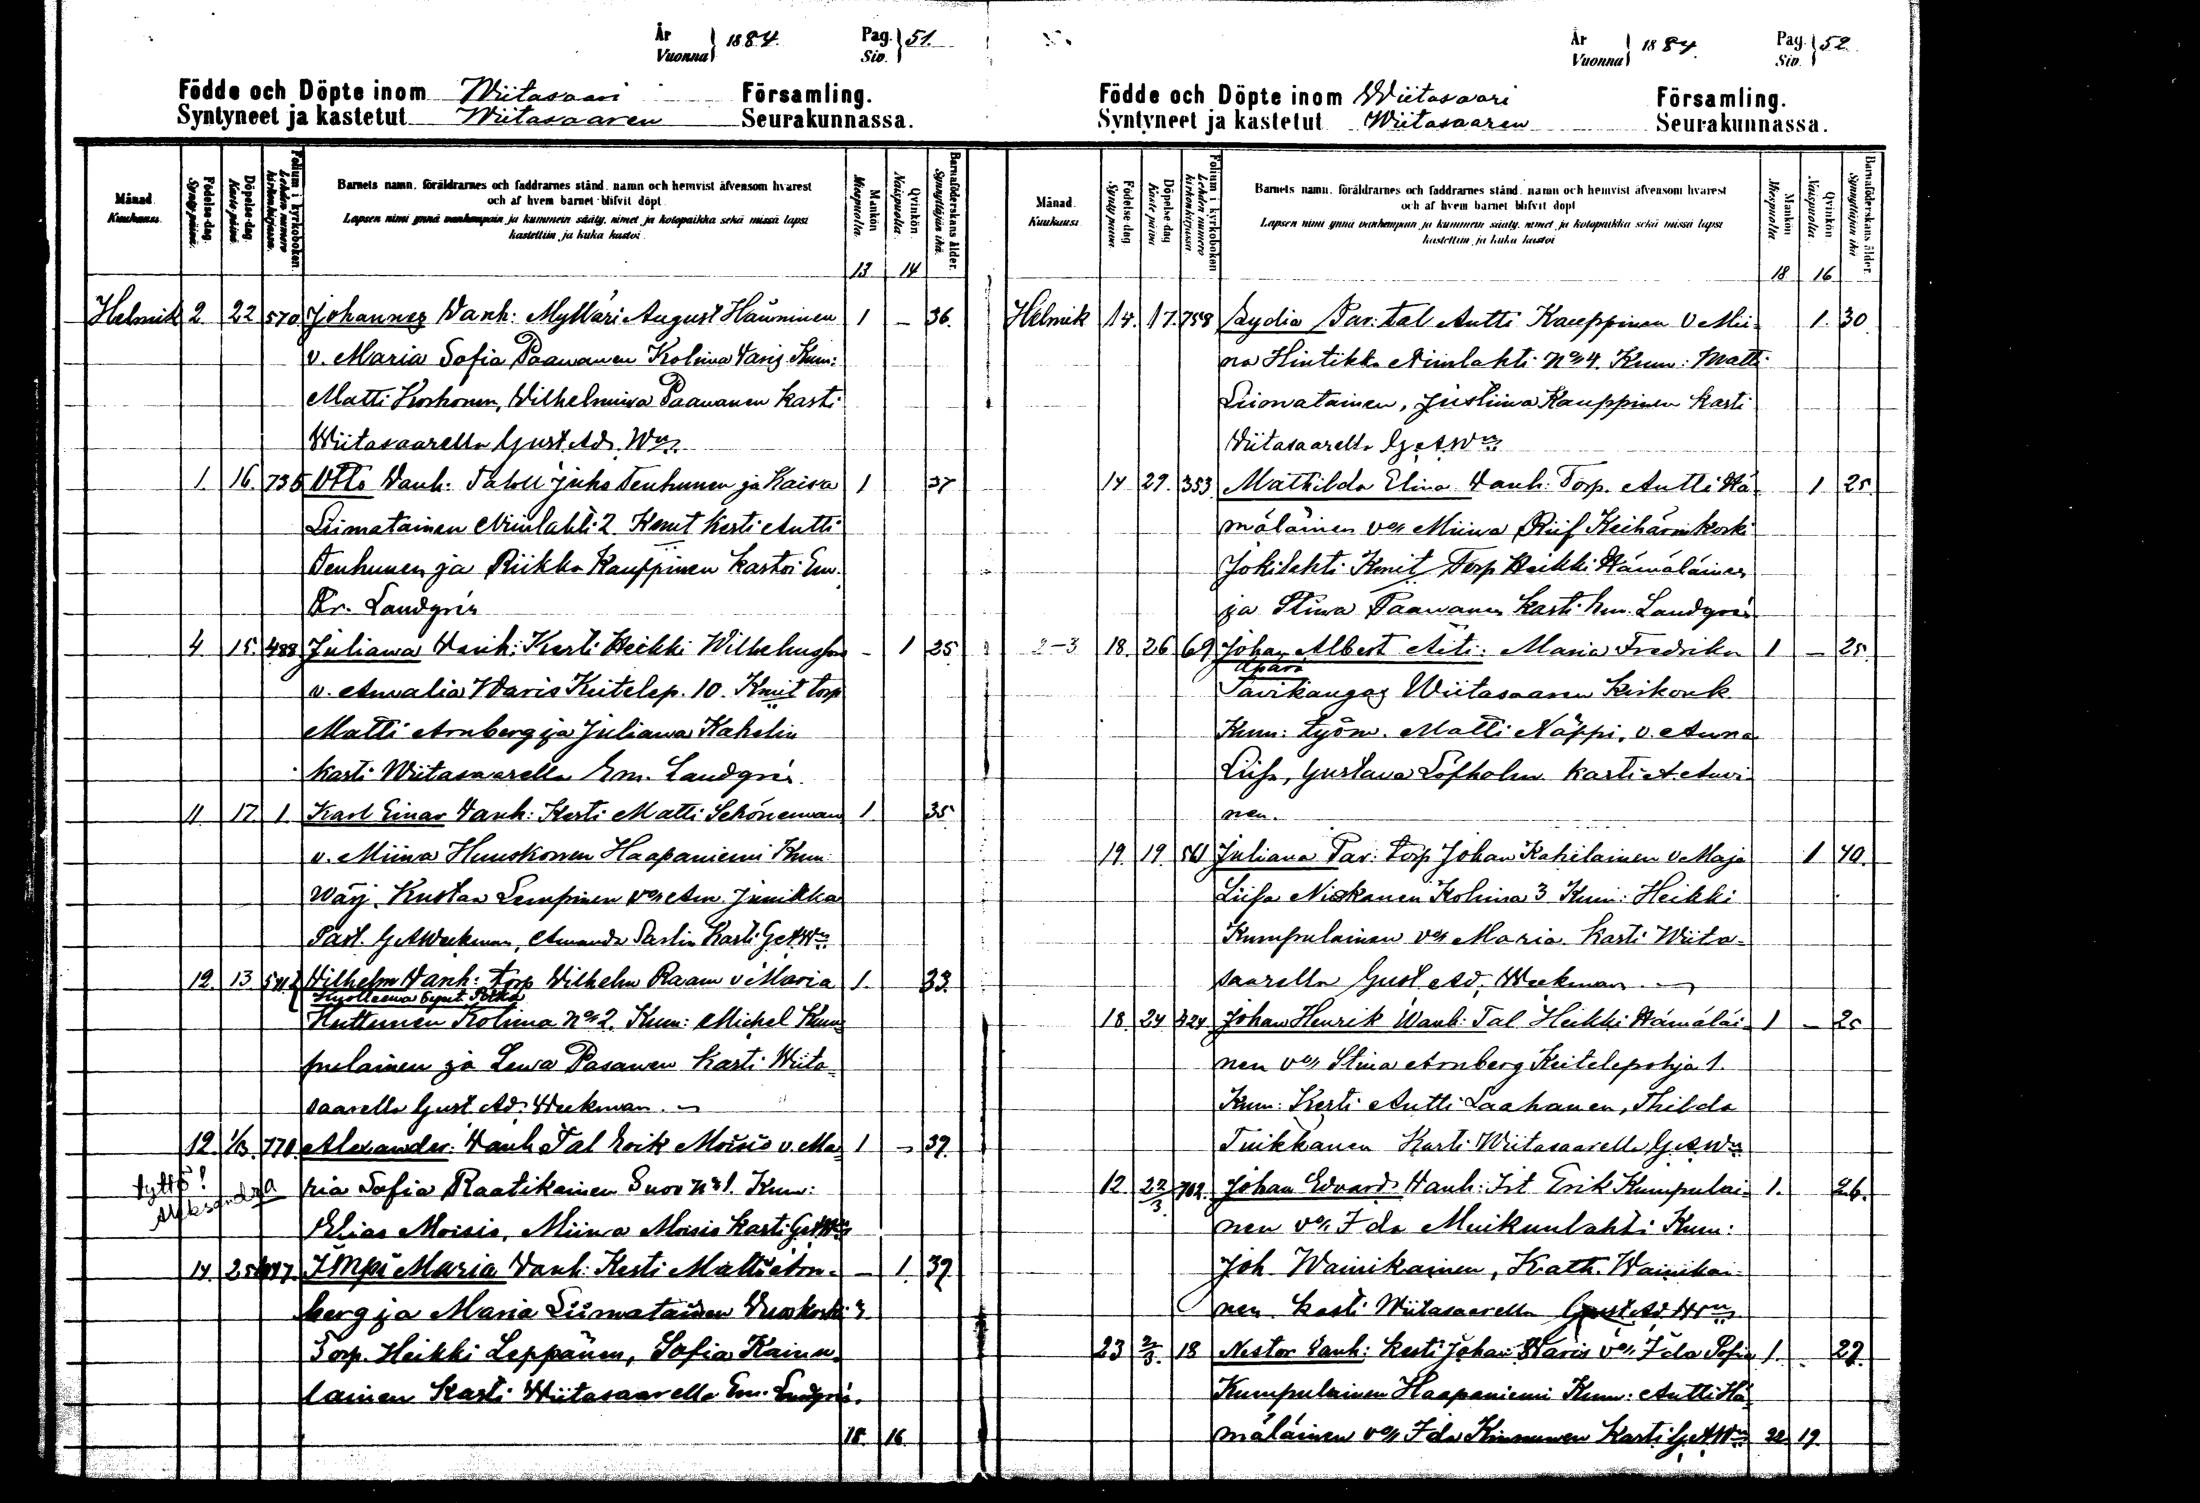 År Vuonna 1884. Pag. Siv. 51.
Födde och Döpte inom Wiitasaari Församling.
Syntyneet ja kastetut Wiitasaaren Seurakunnassa.
Månad. Kuukausi.
Födelse-dag. Synty päivä.
Döpelse-dag. Kaste päivä.
Folium i kyrkoboken. Lehden numero kirkonkirjassa.
Barnets namn, föräldrarnes och faddrarnes stånd, namn och hemvist äfvensom hvarest
och af hvem barnet blifvit döpt.
Lapsen nimi ynnä vanhempain ja kummein sääty, nimet ja kotopaikka sekä missä lapsi
kastettiin ja kuka kastoi.
Mankön Miespuolia.
Qvinkön Naispuolia.
Barnaföderskans ålder. Synnyttäjän ikä.
13 14
Helmik 2 22 570 Johannes Vanh: Mylläri August Hänninen 1 - 36.
v. Maria Sofia Paananen Kolima Varis Kum:
Matti Korhonen, Wilhelmiina Paananen kasti
Wiitasaarella Gust. Ad. Wn
1. 16. 735 Otto Vanh: Taloll Juho Tenhunen ja Kaisa 1 37
Liimatainen Niinilahti 2. Kmit Kesti Antti
Tenhunen ja Riikka Kauppinen kastoi Em.
Kr. Landgrén
4. 15. 488 Juliana Vanh: Kesti Heikki Wilhelmsson - 1 25
v. Amalia Waris Keitelep. 10. Kmit torp
Matti Arnberg ja Juliana Kahelin
kasti Wiitasaarella Em. Landgrén.
11. 17. 1. Karl Einar Vanh: Kesti Matti Schöneman 1. 35
v. Miina Huuskonen Haapaniemi Kum:
Wärj. Kustaa Lempinen
Past. G A Weekman, Amanda Sarlin Kasti G A Wn
12. 13. 541 Wilhelm Vanh: torp Wilhelm Raam v Maria 1. 33.
Kuolleena synt. Poika
Huttunen Kolima No 2. Kum: Michel Kum=
pulainen ja Leena Pasanen kasti Wiita=
saarella Gust. Ad. Weekman.
12. 1/3. 770. Alexander: Vanh Tal Erik Moisio v. Ma= 1 - 39.
tyttö!
Aleksandra
ria Sofia Raatikainen Suov No 1. Kum:
Elias Moisio, Miina Moisio kasti G A Wn
14 25 Impi Maria Vanh: Kesti Matti Arn= - 1. 39
berg ja Maria Liimatainen Vuoskoski 2
Torp. Heikki Leppänen, Sofia Kainu=
lainen Kasti Wiitasaarella Em. Landgrén.
18. 16.
År Vuonna 1884. Pag. Siv. 52.
Födde och Döpte inom Wiitasaari Församling.
Syntyneet ja kastetut Wiitasaaren Seurakunnassa.
Månad. Kuukausi.
Födelse dag Synty päivä
Döpelse dag Kaste päivä
Folium i kyrkoboken Lehden numero kirkonkirjassa
Barnets namn, föräldrarnes och faddrarnes stånd, namn och hemvist äfvensom hvarest
och af hvem barnet blifvit döpt
Lapsen nimi ynnä vanhempain ja kummein sääty, nimet ja kotopaikka sekä missä lapsi
kastettiin ja kuka kastoi
Mankön Miespuolia
Qvinkön Naispuolia.
Barnaföderskans ålder. Synnyttäjän ikä
18 16
Helmik 14. 17. 758 Lydia Par: tal Antti Kauppinen v Mii= 1. 30
na Hintikka Niinilahti No 4. Kum: Matti
Liimatainen, Justiina Kauppinen kasti
Wiitasaarella G. A. Wn
14 29. 353 Mathilda Elina Vanh: Torp. Antti Hä= 1 25.
mäläinen Miina Riif Keihärinkoski
Jokilahti Kmit Torp Heikki Hämäläinen
ja Stiina Paananen kasti Em. Landgrén
2-3 18. 26 69 Johan Albert Äiti: Maria Fredrika 1 - 25.
äpärä
Savikangas Wiitasaaren Kirkonk.
Kum: työm. Matti Näppi, v. Anna
Liisa, Gustava Löfholm kasti A. Auvi=
nen.
19. 19 561 Juliana Par: torp Johan Kahilainen v Maja 1 40.
Liisa Niskanen Kolima 3 Kum: Heikki
Kumpulainen Maria. kasti Wiita=
saarella Gust Ad. Weekman
18. 24 424 Johan Henrik Vanh: Tal Heikki Hämäläi= 1 - 25
nen Stina Arnberg Keitelepohja 1.
Kum: Kesti Antti Laahanen, Thilda
Tuikkanen Kasti Wiitasaarella G. A Wn
12 22/3 702. Johan Edvard Vanh: Irt Erik Kumpulai= 1. 26.
nen Ida Muikunlahti Kum:
Joh. Wainikainen, Kath. Wainikai=
nen kasti Wiitasaarella Gust Ad. Wn
23 2/3 18 Nestor Vanh: Kesti Johan Waris Ida Sofia 1. 29.
Kumpulainen Haapaniemi Kum: Antti Hä=
mäläinen Ida Kinnunen Kasti G. A Wn 22. 19.